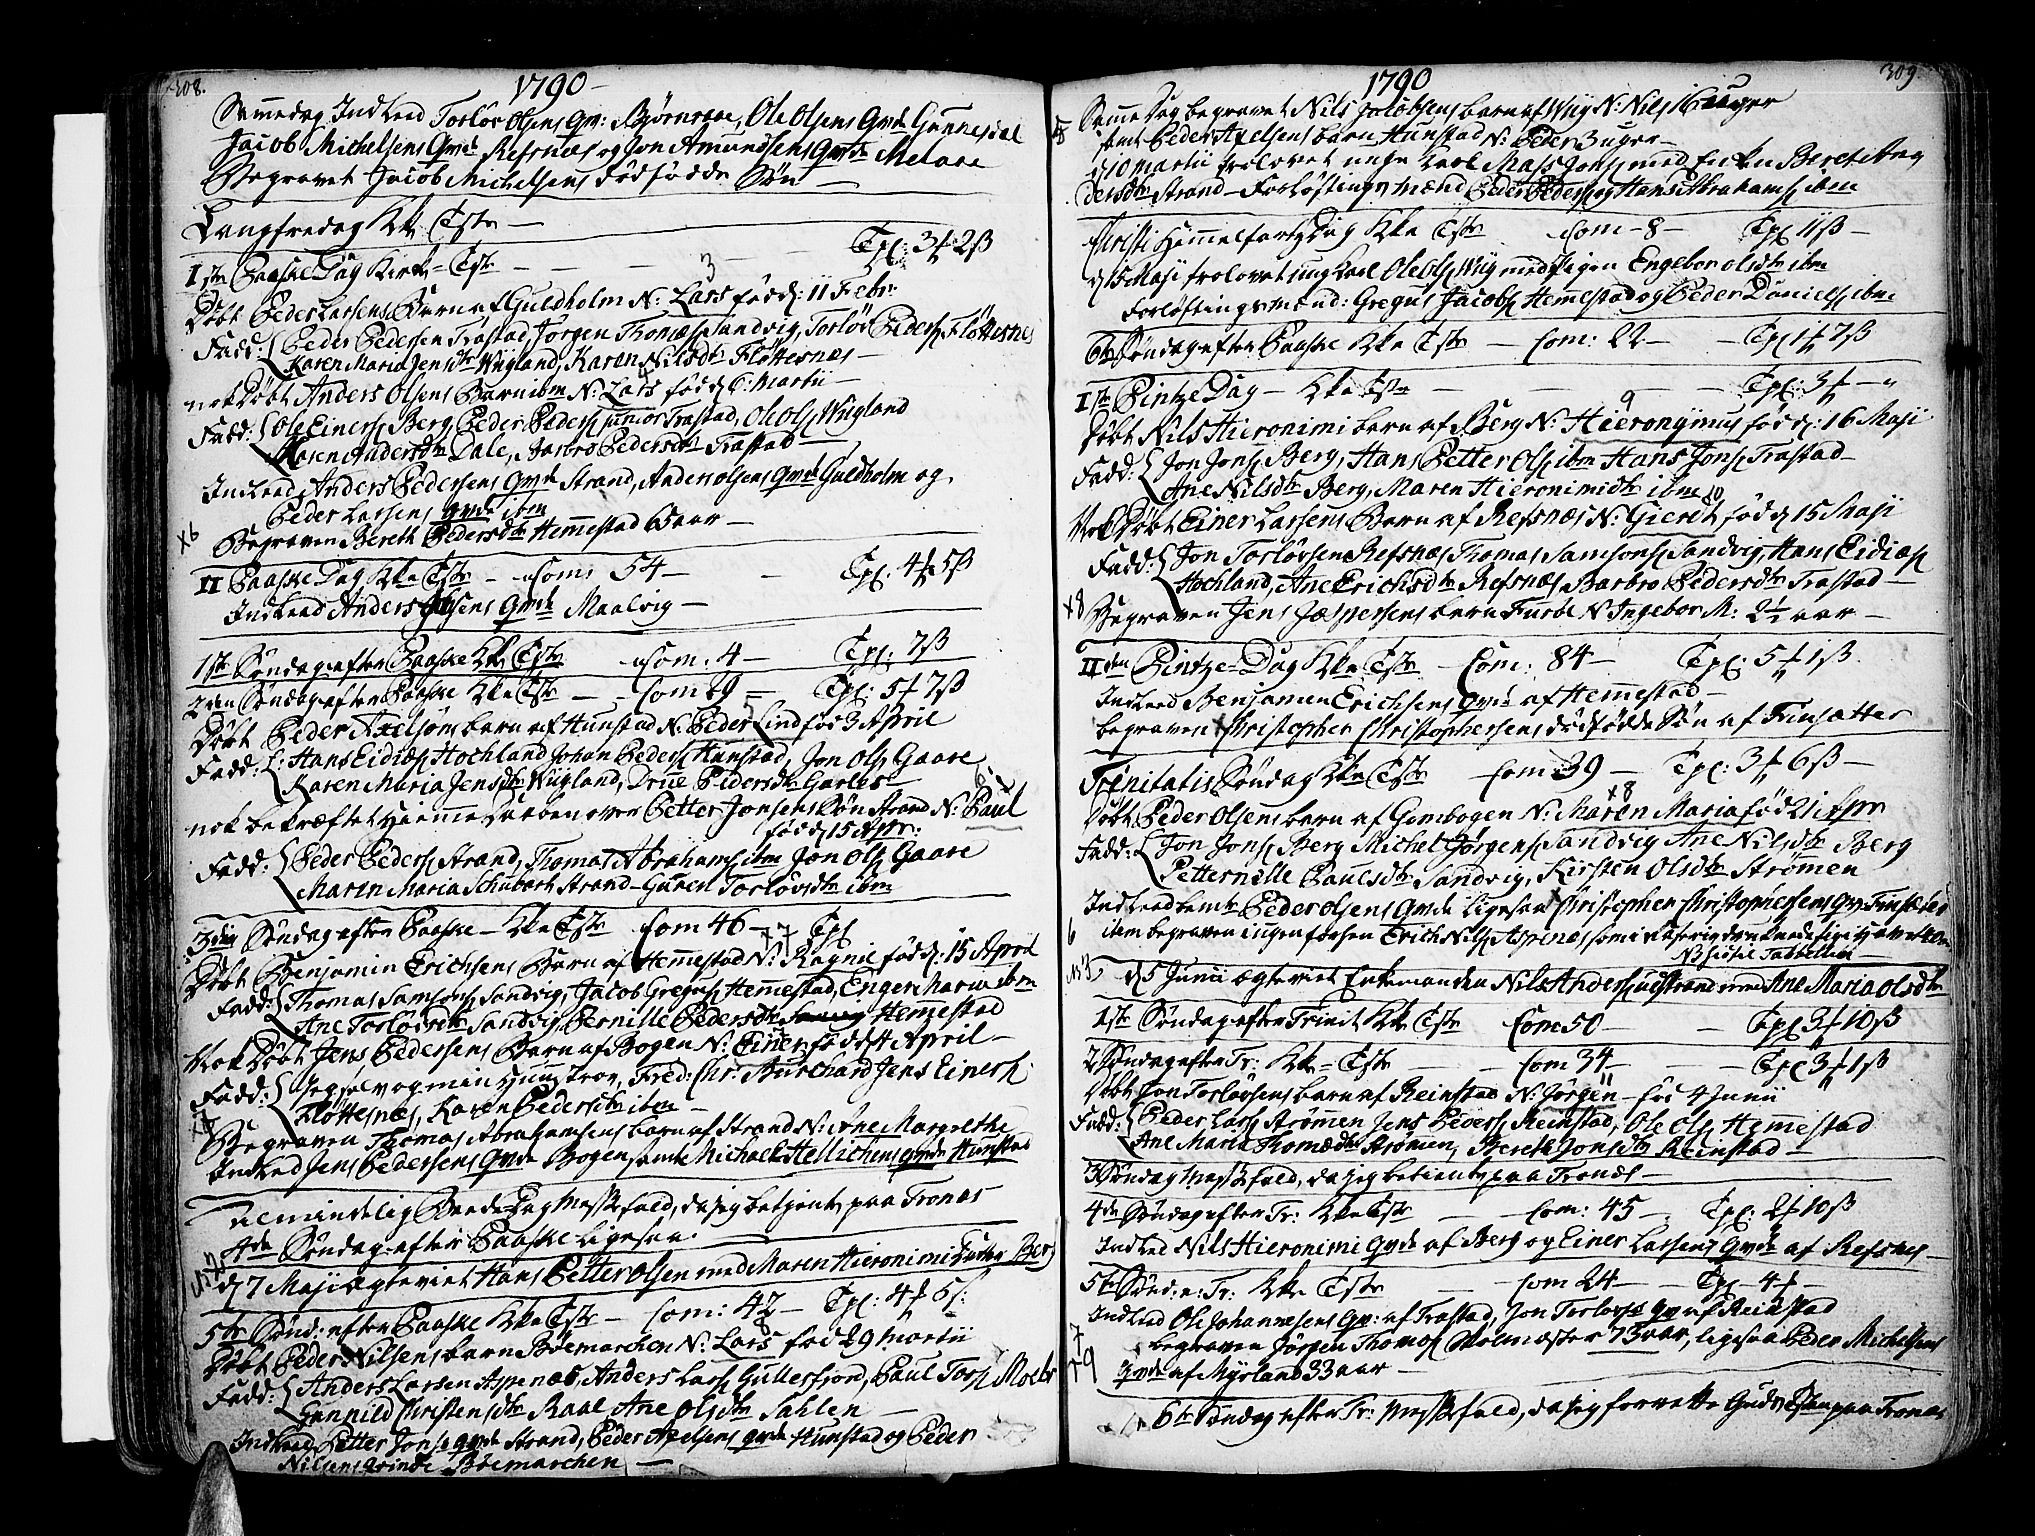 308.
1790
Samme dag Indleed Torlov Olsens Qv: Bjørnraae, Ole Olsens Qvde Gunnesdal
Jacob Michelsens Qvde Refsnæs og Jon Amundsens Qvde Melaae
Begravet Jacob Michelsens dødfødde Søn
Langfredag Kke Tste
Iste Paaske Dag Kirk- Tste Tpl: 3 2ß
3
Døbt Peder Larsens Barn af Guldholm N: Lars fødd: 11 Febr:
Fadd: Peder Pedersen Trastad, Jørgen Thomæs Sandvig, Torlov Peders Fløttesnes
Karen Maria Jensdtr Wiigland, Karen Nilsdtr Fløttesnæs
nok Døbt Anders Olsens Barn ibm N: Lars fød d 6: Martii
Fadd: Ole Einers Berg, Peder Peders junior Trastad, Ole Ols Wiigland
Maren Andersdtr Dale, Barbro Pedersdtr Trastad
Indleed Anders Pedersens Qvde Strand, Anders Olsens Qvde Guldholm og
Peder Larsens qvde ibm
x6 Begraven Bereth Pedersdtr Hemmestad 65 aar
II Paaske Dag Kke Tste Com: 54 Tpl: 4 5ß
Indleed Anders Olsens Qvde Maalvig
1ste Søndag efter Paaske Kke Tste Com: 4 Tpl: 7ß
2den Søndag efter Paaske Kke Tste Com 29 Tpl: 5 7ß
5
Døbt Peder Axelsøns barn af Hunstad N: Peder Lind fød 3 April
Fadd: Hans Eidiæs Hochland Johan Peders Hunstad, Jon Ols Gaare
Karen Maria Jensdtr Wiigland, Drue Pedersdtr Garles
6
nok bekræftet Hiemme Daaben over Petter Jonsens Søn Strand N: Paul
fødd 15 Apr:
Fadd: Peder Peders Strand, Thomas Abrahams ibm Jon Ols Gaare
Maren Maria Schubart Strand Guren Torlovsdtr ibm
3die Søndag efter Paaske Kke Tste Com 46 Tpl
x7 7
Døbt Benjamin Erichsens Barn af Hemmestad N: Ragnil fødd: 15 April
Fadd: Thomas Samsons Sandvig, Jacob Gregus Hemmestad, Engen Maria ibm
Ane Torlovsdtr Sandvig, Pernille Pedersdtr Hemmestad
Nok Døbt Jens Pedersens Barn af Bogen N: Einer fødd 4 April
Fadd: Jeg selv og min Hustrov, Fred: Chr: Burchard Jens Einers
Fløttesnæs, Karen Pedersdtr ibm
Begraven Thomas Abrahamsens barn af Strand N: Ane Margrethe
Indleed Jens Pedersens Qvde Bogen samt Michael Hellichens qvde Hunstad
Almindelig Beede Dag Messefald, da jeg betjente paa Tronæs
4de Søndag efter Paaske ligesaa
N2 d 7 Maji Ægteviet Hans Petter Olsen med Maren Hieronimi Datter Berg
5te Sønd: efter Paaske Kke Tste Com: 42 Tpl: 4 6ß:
8
Døbt Peder Nilsens barn Bøemarchen N: Lars fød 29 Martii
Fadd: Anders Larsen Aspenæs, Anders Lars Gullesfjord, Paul Tors Moeb
Gunnild Christensdtr Kaal Ane Olsdtr Sahlen
Indleed Petter Jonse qvde Strand, Peder Axelsens qvde Hunstad og Peder
Nilsens qvinde Bøemarchen
309
1790
5 Samme Dag begravet Nils Jacobsens barn af Wiig N: Nils 16 uger
8 samt Peder Axelsens barn Hunstad N: Peder 3 uger
d 10 Martii trolovet unge Karl Mass Jons med Enken Bereth An
dersdtr Strand Forløftingsmænd Peder Peders og Hans Abrahams ibm
Christi Himmelfarts Dag Kke Tste Com 8 Tpl 11ß
d 15 Maji trolovet ung Karl Ole Ols Wiig med Pigen Engebor Olsdtr ibm
Forløftingsmænd: Gregus Jacobs Hemmestad og Peder Daniels ibm
6te Søndag efter Paaske Kke Tste Com: 22 Tpl 1 7ß
Iste Pintze Dag Kke Tste Tpl: 3
9
Døbt Nils Hieronimi barn af Berg N: Hieronymus fød d: 16 Maji
Fadd: Jon Jons Berg, Hans Petter Ols ibm Hans Jons Trastad
Ane Nilsdtr Berg, Maren Hieronimidtr ibm
10
Nok Døbt Einer Larsens Barn af Refsnæs N: Gierdt fød d 15 Maji
Fadd: Jon Torlovsen Refsnæs Thomas Samsons Sandvig, Hans Eidiæs
Hochland, Ane Erichsdtr Refsnæs Barbro Pedersdtr Trastad
x8 Begraven Jens Jæspersens barn Furbe N Ingebor M: 2½ aar
IIden Pintze Dag Kke Tste Com: 84 Tpl: 5 1ß
Indleed Benjamin Erichsens Qvde af Hemmestad
begraven Christopher Christophersens dødfødde Søn af Finsætter
Trinitatis Søndag Kke Tste Com: 39 Tpl: 3 6ß
x8
Døbt Peder Olsens barn af Gombogen N: Maren Maria fød 21 Apr
Fadd: Jon Jons Berg Michel Jørgens Sandvig Ane Nilsdtr Berg
Petternelle Paulsdtr Sandvig, Kirsten Olsdtr Strømen
Indleed Peder Olsens Qvde ligesaa Christopher Christophersens qv: Finsæter
6 item begraven Erich Nils Aspenæs
N3 sidste Tabbellen
N3 d 5 Junii Ægteviet Enkemanden Nils Anders med Ane Maria Olsdtr
1ste Søndag efter Trinit Kke Tste Com 50 Tpl 3 10ß
2 Søndag efter Tr: Kke Tste Com 34 Tpl 3 1ß
11
Døbt Jon Torlovsens barn af Reinstad N: Jørgen fød 4 Junii
Fadd: Peder Lars Strømen Jens Peders Reinstad, Ole Ols Hemmestad
Ane Maria Thomædtr Strømen, Bereth Jonsdtr Reinstad
3 Søndag Messefald, da jeg betiente paa Tronæs
4de Søndag efter Tr: Kke Tste Com: 45 Tpl: 2 10ß
Indleed Nils Hieronimi Qvde af Berg og Einer Larsens Qvde af Refsnes
5te Sønd: e: Tr: Kke Tste Com 24 Tpl: 4
Indleed Ole Johannesens Qv: af Trastad, Jon Torlovs qv af Reinstad
7 begraven Jørgen Thomæs Holmæster 73 aar, ligesaa Peder Michelsens
79 Qvde af Myrland 33 aar
6te Søndag efter Tr: Messefald, da jeg forrette Guds Tien paa Tronæs